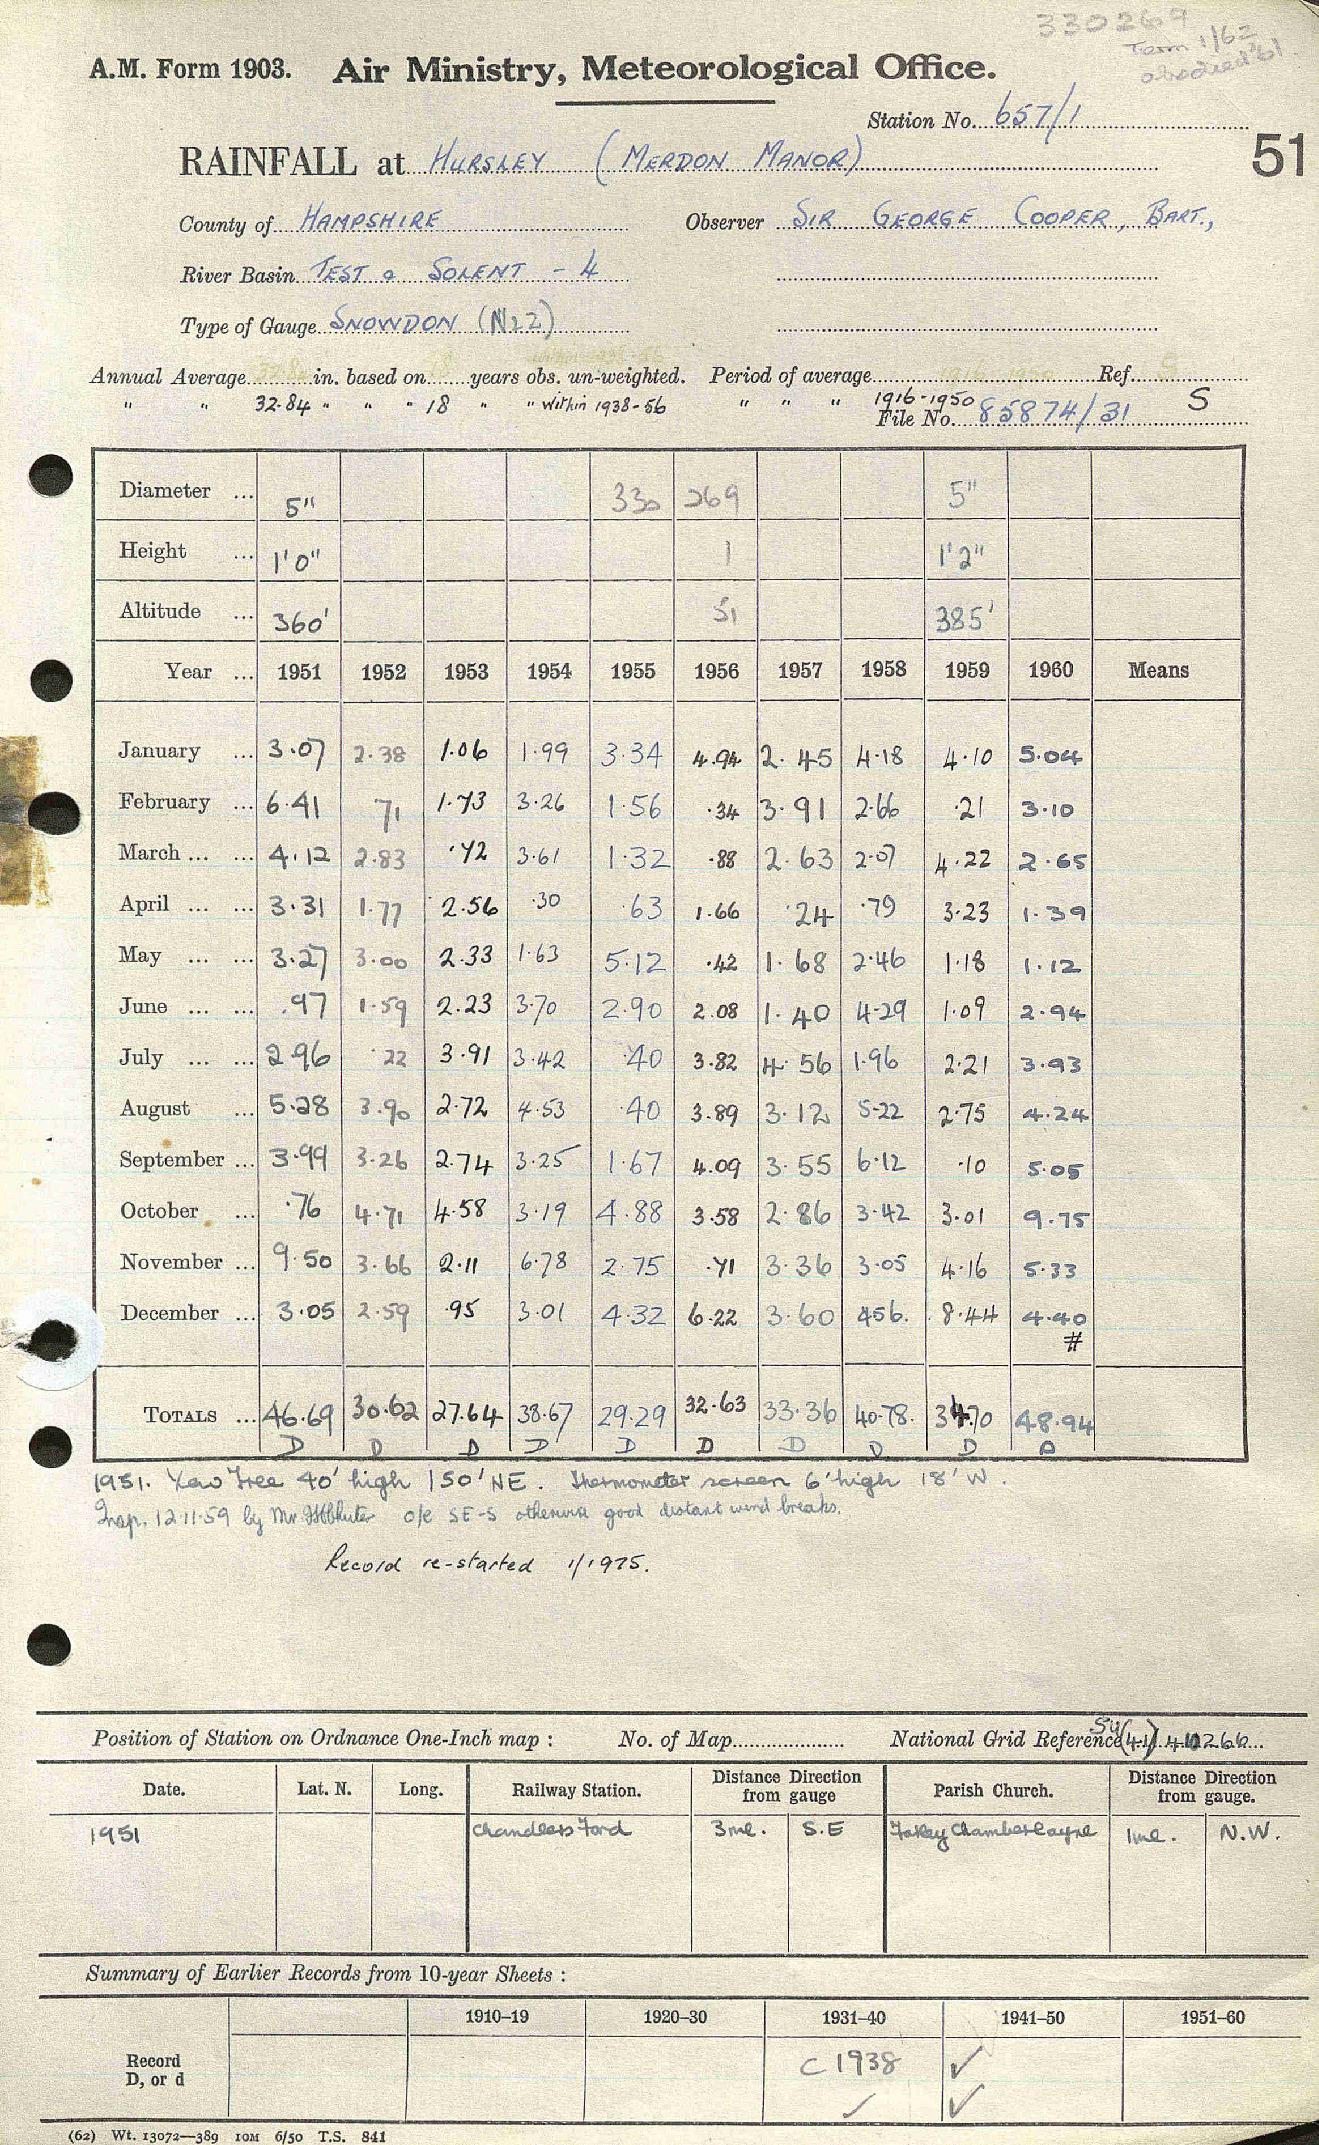 330269
Term 1/62
A.M. Form 1903. Air Ministry, Meteorological Office.
Station No. 657/1
51
RAINFALL at HURSLEY (MERDON MANOR)
County of HAMPSHIRE Observer SIR GEORGE COOPER, BART.,
River Basin TEST & SOLENT - 4
Type of Gauge SNOWDON (N22)
Annual Average 32.84 in. based on years obs. un-weighted. Period of average 1916-1950 Ref. S
" " 32.84 " " " 18 " " Within 1938-56 " " " 1916-1950 S
File No. 85874/31
Diameter ... 5" 330 269 5"
Height ... 1'0" 1 1'2"
Altitude ... 360' 51 385'
Year ... 1951 1952 1953 1954 1955 1956 1957 1958 1959 1960 Means
January ... 3.07 2.38 1.06 1.99 3.34 4.94 2.45 4.18 4.10 5.04
February ... 6.41 71 1.73 3.26 1.56 .34 3.91 2.66 .21 3.10
March ... ... 4.12 2.83 .72 3.61 1.32 .88 2.63 2.07 4.22 2.65
April ... ... 3.31 1.77 2.56 .30 .63 1.66 .24 .79 3.23 1.39
May ... ... 3.27 3.00 2.33 1.63 5.12 .42 1.68 2.46 1.18 1.12
June ... ... .97 1.59 2.23 3.70 2.90 2.08 1.40 4.29 1.09 2.94
July ... ... 2.96 .22 3.91 3.42 .40 3.82 4.56 1.96 2.21 3.93
August ... 5.28 3.90 2.72 4.53 .40 3.89 3.12 5.22 2.75 4.24
September ... 3.99 3.26 2.74 3.25 1.67 4.09 3.55 6.12 .10 5.05
October ... .76 4.71 4.58 3.19 4.88 3.58 2.86 3.42 3.01 9.75
November ... 9.50 3.66 2.11 6.78 2.75 .71 3.36 3.05 4.16 5.33
December ... 3.05 2.59 .95 3.01 4.32 6.22 3.60 456. 8.44 4.40
#
TOTALS ... 46.69 30.62 27.64 38.67 29.29 32.63 33.36 40.78. 34.70 48.94
D D D D D D D D D D
1951. Yew Tree 40' high 150' NE. Thermometer screen 6' high 18' W.
Insp. 12.11.59 by Mr. o/e SE-S otherwise good distant wind breaks.
Record re-started 1/1975.
Position of Station on Ordnance One-Inch map : No. of Map National Grid Reference SU (41) 410266
Date. Lat. N. Long. Railway Station. Distance Direction from gauge Parish Church. Distance Direction from gauge.
1951 Chandlers Ford 3ml. S.E Chamberlayne 1ml. N.W.
Summary of Earlier Records from 10-year Sheets :
1910-19 1920-30 1931-40 1941-50 1951-60
Record D, or d C 1938 ✓
✓ ✓
(62) Wt. 13072—389 10M 6/50 T.S. 841